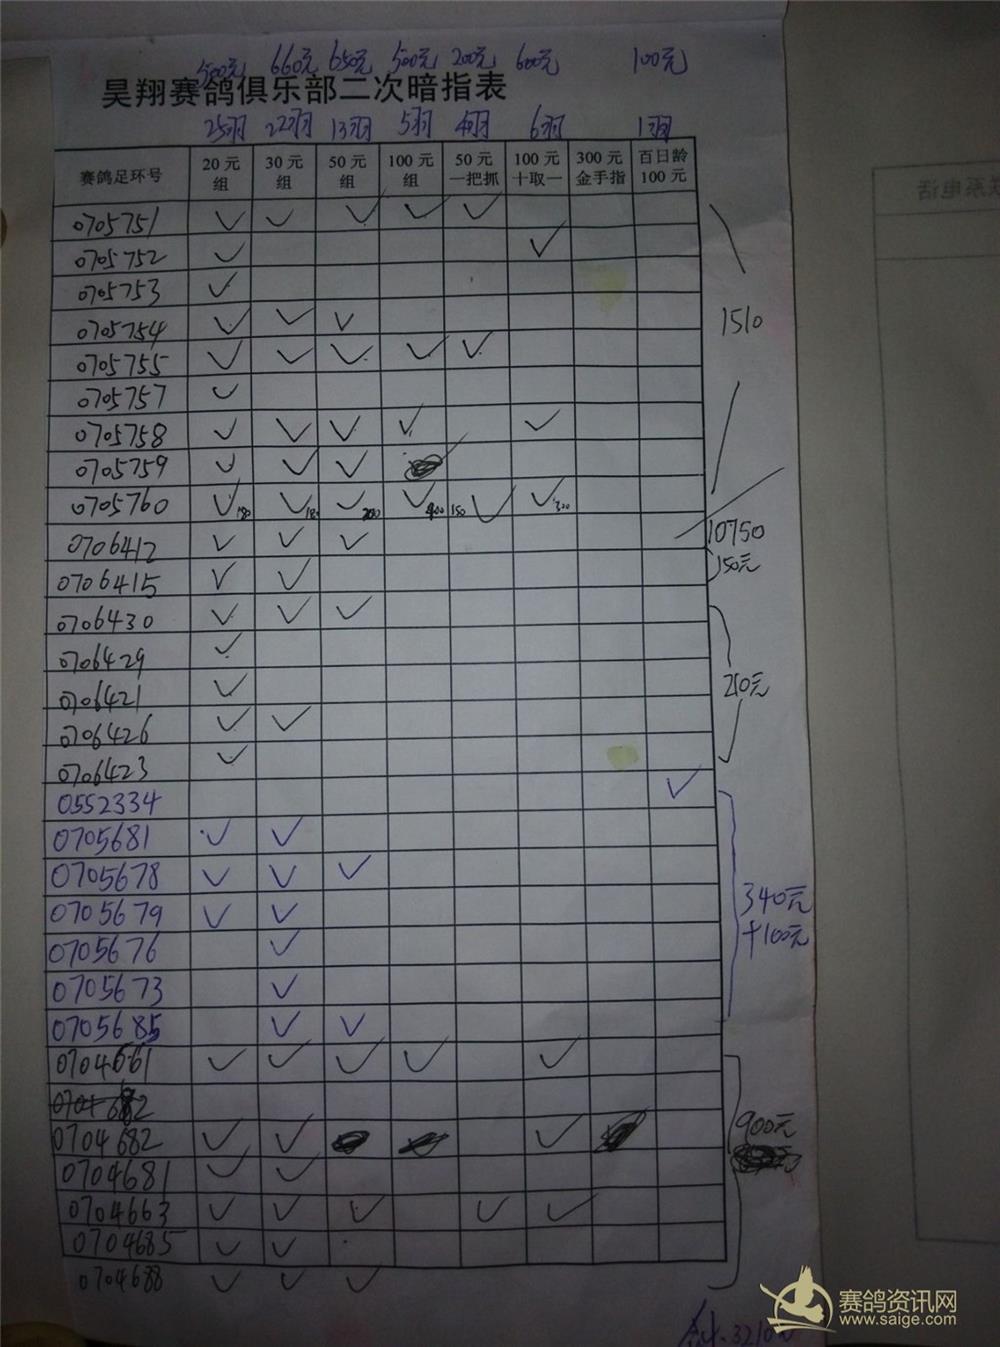 500元 660元 650元 500元 200元 600元 100元
昊翔赛鸽俱乐部二次暗指表
25羽 22羽 13羽 5羽 4羽 6羽 1羽
赛鸽足环号 20元组 30元组 50元组 100元组 50元一把抓 100元十取一 300元金手指 百日龄100元
联系电话
0705751 ✓ ✓ ✓ ✓ ✓
0705752 ✓ ✓
0705753 ✓
0705754 ✓ ✓ ✓
1510
0705755 ✓ ✓ ✓ ✓ ✓
0705757 ✓
0705758 ✓ ✓ ✓ ✓ ✓
0705759 ✓ ✓ ✓
0705760 ✓ ✓ ✓ ✓ 150 ✓ ✓ 300
10750
0706412 ✓ ✓ ✓
150元
0706415 ✓ ✓
0706430 ✓ ✓ ✓
0706429 ✓
0706421 ✓
210元
0706426 ✓ ✓
0706423 ✓
0552334 ✓
0705681 ✓ ✓
0705678 ✓ ✓ ✓
340元
0705679 ✓ ✓
+100元
0705676 ✓
0705673 ✓
0705685 ✓ ✓
0704661 ✓ ✓ ✓ ✓ ✓
900元
0704682 ✓ ✓ ✓
0704681 ✓ ✓
0704663 ✓ ✓ ✓ ✓ ✓
0704685 ✓ ✓
0704688 ✓ ✓ ✓
3210元
赛鸽资讯网
www.saige.com